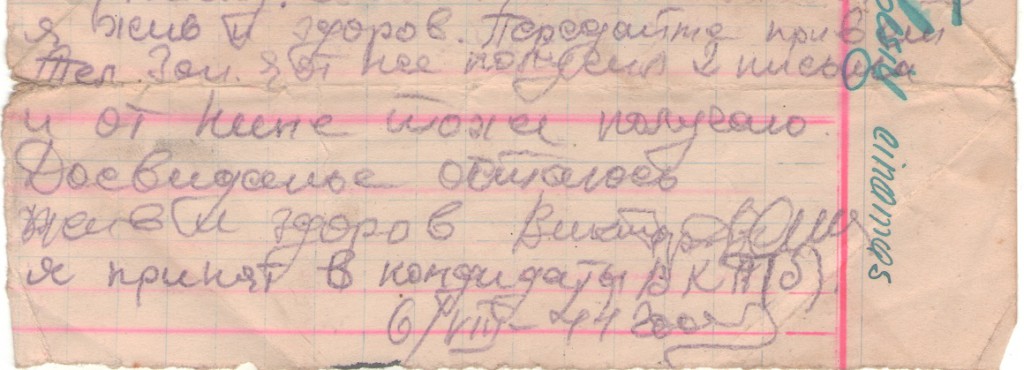 я жив и здоров. Передайте привет
Зои. я от нее получил 2 письма
и от Нине тоже получаю.
Досвиданье остаюсь
жив и здоров Виктор
я принят в кондидаты ВКП(б).
6/VIII-44 года